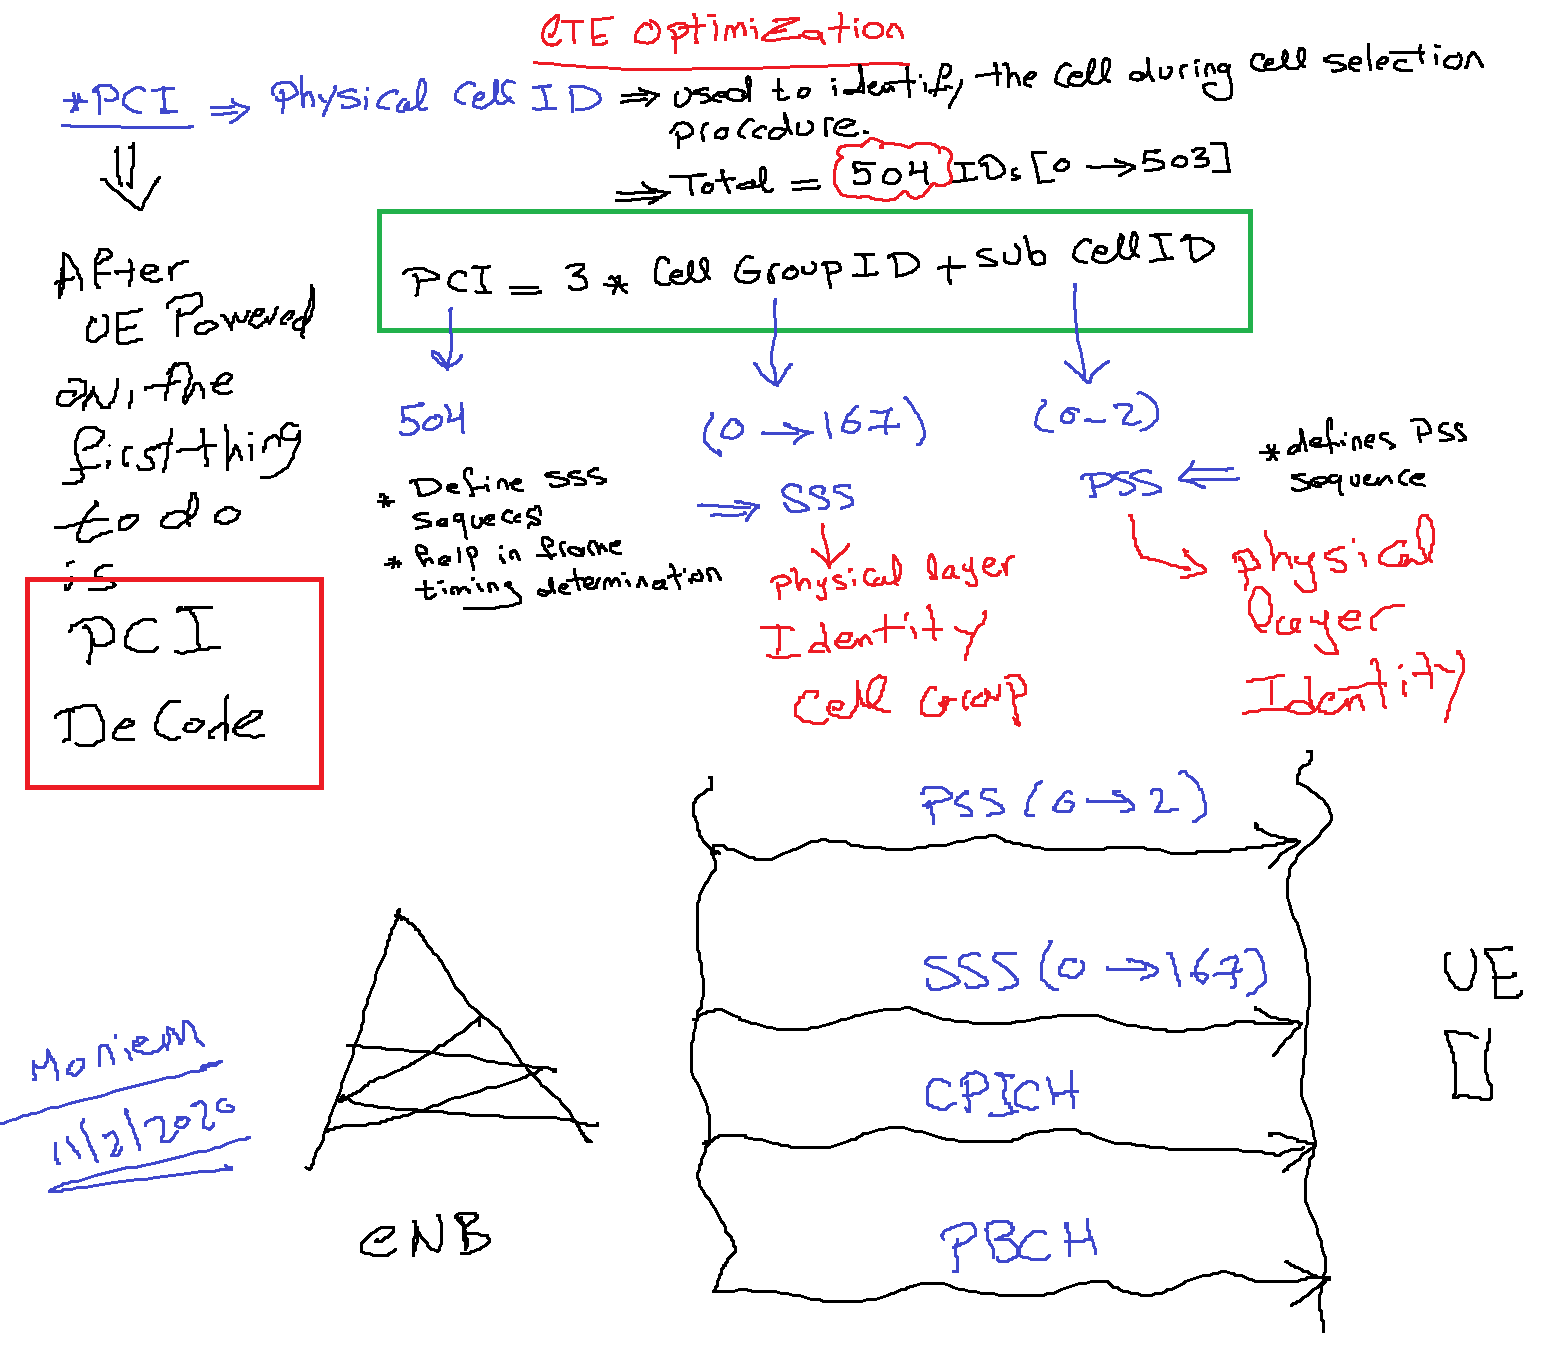 LTE Optimization
*PCI ⇒ Physical Cell ID ⇒ used to identify the cell during cell selection
procedure.
⇒ Total = 504 IDs [0 → 503]
PCI = 3 * Cell Group ID + sub cell ID
504
(0 → 167)
(0-2)
After
UE Powered
on, the
first thing
to do
is
PCI
DeCode
* Define SSS
sequeces
* help in frame
timing determination
⇒ SSS
Physical layer
Identity
Cell Group
PSS ⇐ * defines PSS
sequence
physical
layer
Identity
PSS (0 → 2)
SSS (0 → 167)
CPICH
PBCH
UE
eNB
Moniem
11/2/2020